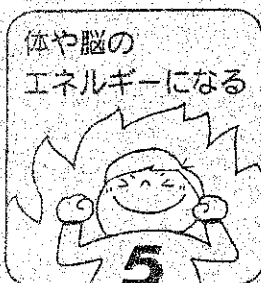 体や脳の
エネルギーになる
5